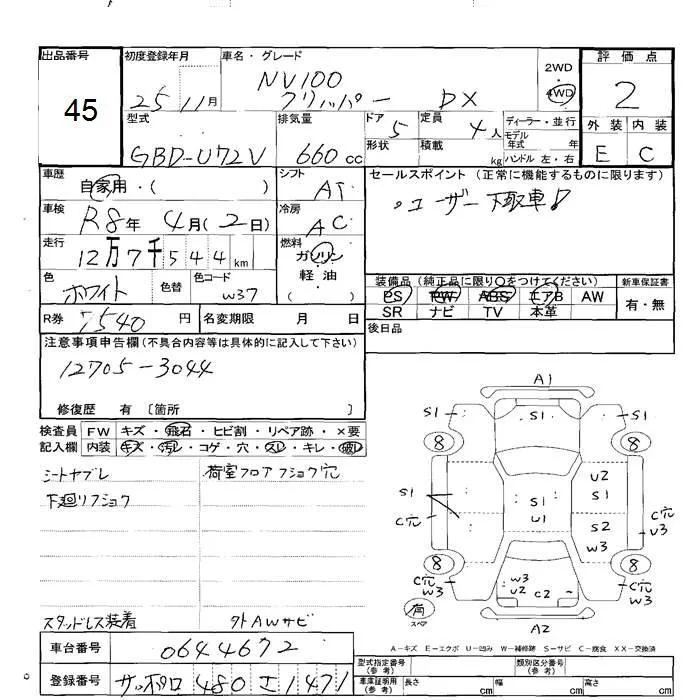 出品番号 初度登録年月 車名・グレード 評価点
45 25 11月 NV100 クリッパー DX 2WD ・ 4WD 2
型式 排気量 ドア 定員 ディーラー・並行 外装 内装
GBD-U72V 660cc 5 4人 モデル年式 年 E C
形状 積載 kg ハンドル 左・右
車歴 シフト セールスポイント (正常に機能するものに限ります)
自家用・( ) AT 。ユーザー下取車!
車検 冷房
R8年 4月(2日) AC
走行 燃料
12万7千544km ガソリン
軽油
( )
色 色替 色コード 装備品(純正品に限り○をつけてください) 新車保証書
ホワイト W37 PS PW ABS エアB AW 有・無
SR ナビ TV 本革
R券 7540円 名変期限 月 日 後日品
注意事項申告欄(不具合内容等は具体的に記入して下さい)
12705-3044
修復歴 有〔箇所 〕
検査員 FW キズ・飛石・ヒビ割・リペア跡・×要
記入欄 内装 キズ・汚レ・コゲ・穴・スレ・キレ・破レ
シートヤブレ 荷室フロアフショク穴
下廻リフショク
スタッドレス装着 外AWサビ
A1
S1 S1 S1
8 8
S1 S1 U1 U2 S1
C穴 S2 W3 C穴 U3
8 8
C穴 W3 W3 U2 C2 C穴 W3
角 スペア
A2
A-キズ E-エクボ U-凹み W-補修跡 S-サビ C-腐食 XX-交換済
車台番号 0644672
登録番号 サッポロ 480 エ 1471
型式指定番号(参考) 類別区分番号(参考)
車庫証明用(参考) 長さ cm 幅 cm 高さ cm